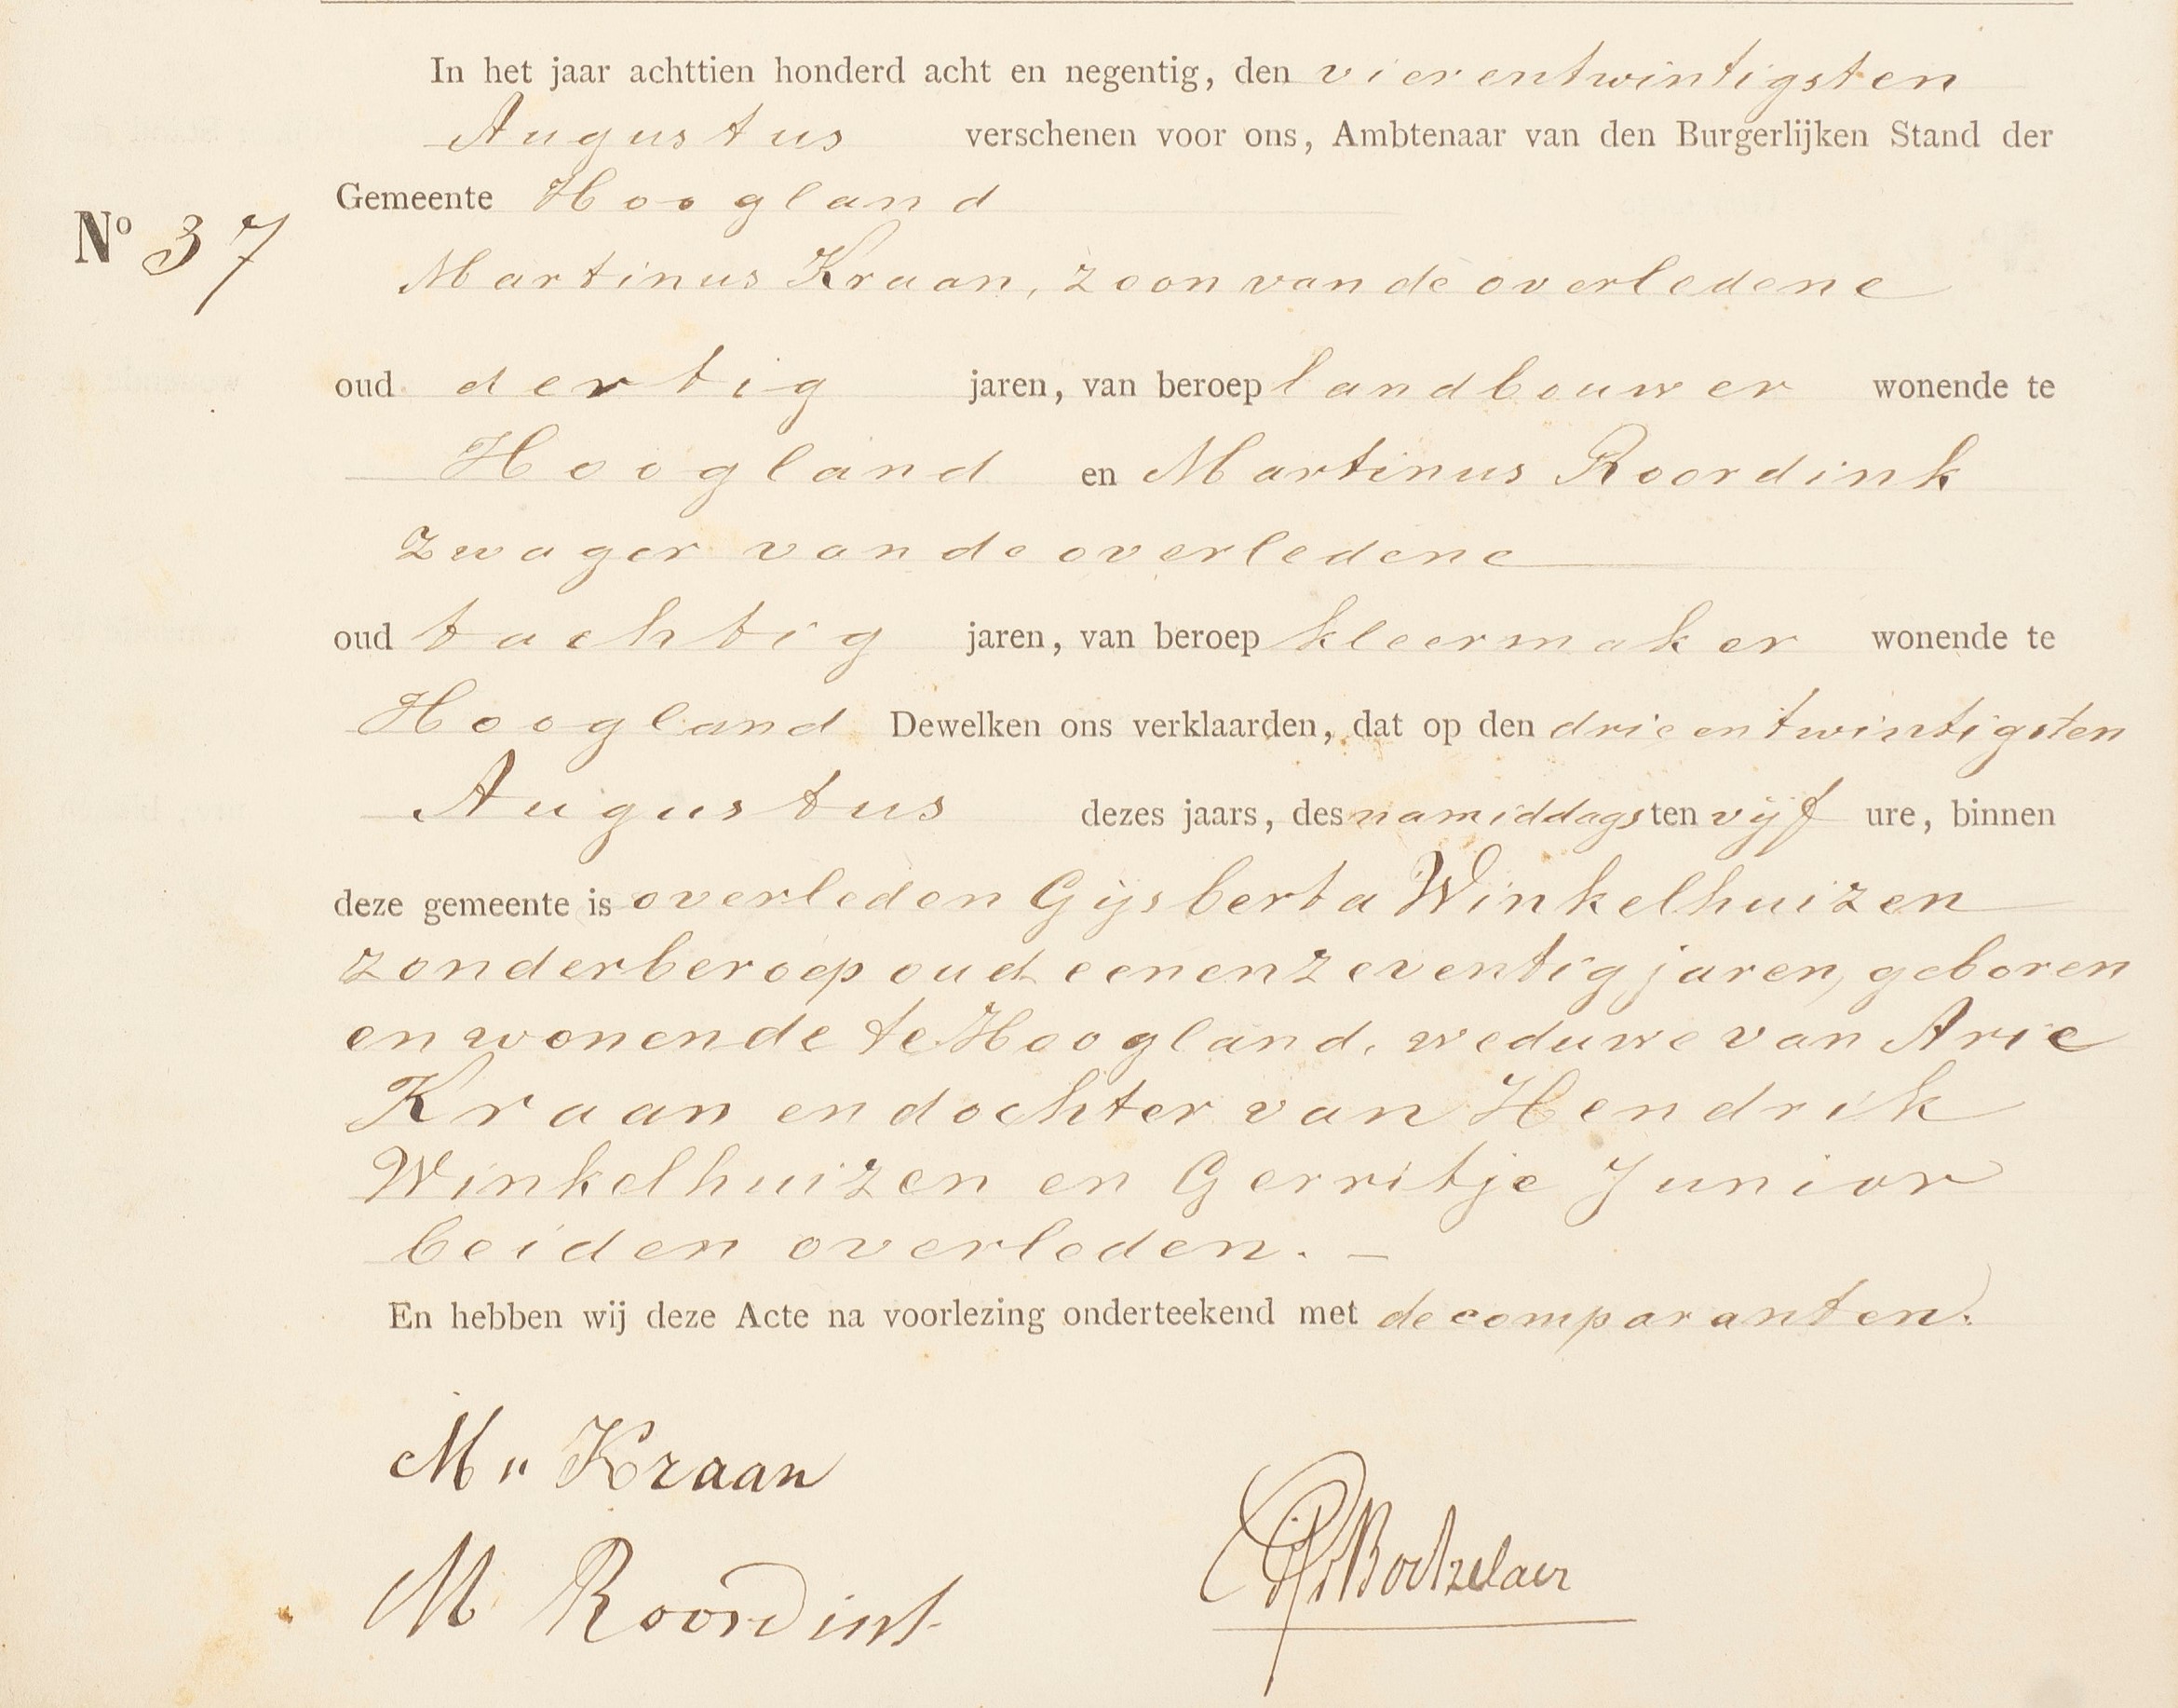 In het jaar achttien honderd acht en negentig, den vierentwintigsten
Augustus verschenen voor ons, Ambtenaar van den Burgerlijken Stand der
Gemeente Hoogland
No 37
Martinus Kraan, zoon van de overledene
oud dertig jaren, van beroep landbouwer wonende te
Hoogland en Martinus Roordink
zwager van de overledene
oud tachtig jaren, van beroep kleermaker wonende te
Hoogland Dewelken ons verklaarden, dat op den drieentwintigsten
Augustus dezes jaars, des namiddags ten vijf ure, binnen
deze gemeente is overleden Gijsberta Winkelhuizen
zonder beroep oud eenenzeventig jaren, geboren
en wonende te Hoogland, weduwe van Arie
Kraan en dochter van Hendrik
Winkelhuizen en Gerritje Junior
beiden overleden. –
En hebben wij deze Acte na voorlezing onderteekend met de comparanten.
M" Kraan
M Roordink